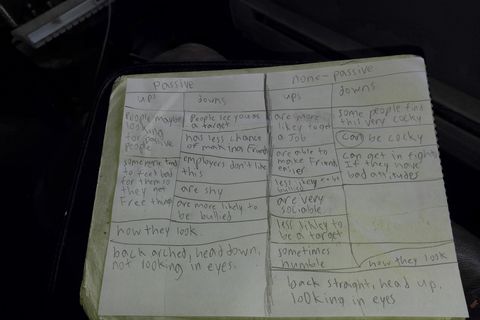 Passive
ups
downs
people maybe
looking
for passive
people
some more tend
to feel bad
for them so
they get
Free things
People see you as
a target
has less chance
of making friends
employers don't like
this
are shy
are more likely to
be bullied
how they look
back arched, head down,
not looking in eyes.
none-passive
ups
downs
are more
likely to get
a Job
are able to
make Friends
easier
less likely to be
bullied
are very
sociable
less likley to
be a target
sometimes
humble
some people find
this very cocky
Can be cocky
can get in fights
If they have
bad attitudes
how they look
back straight, head up,
looking in eyes